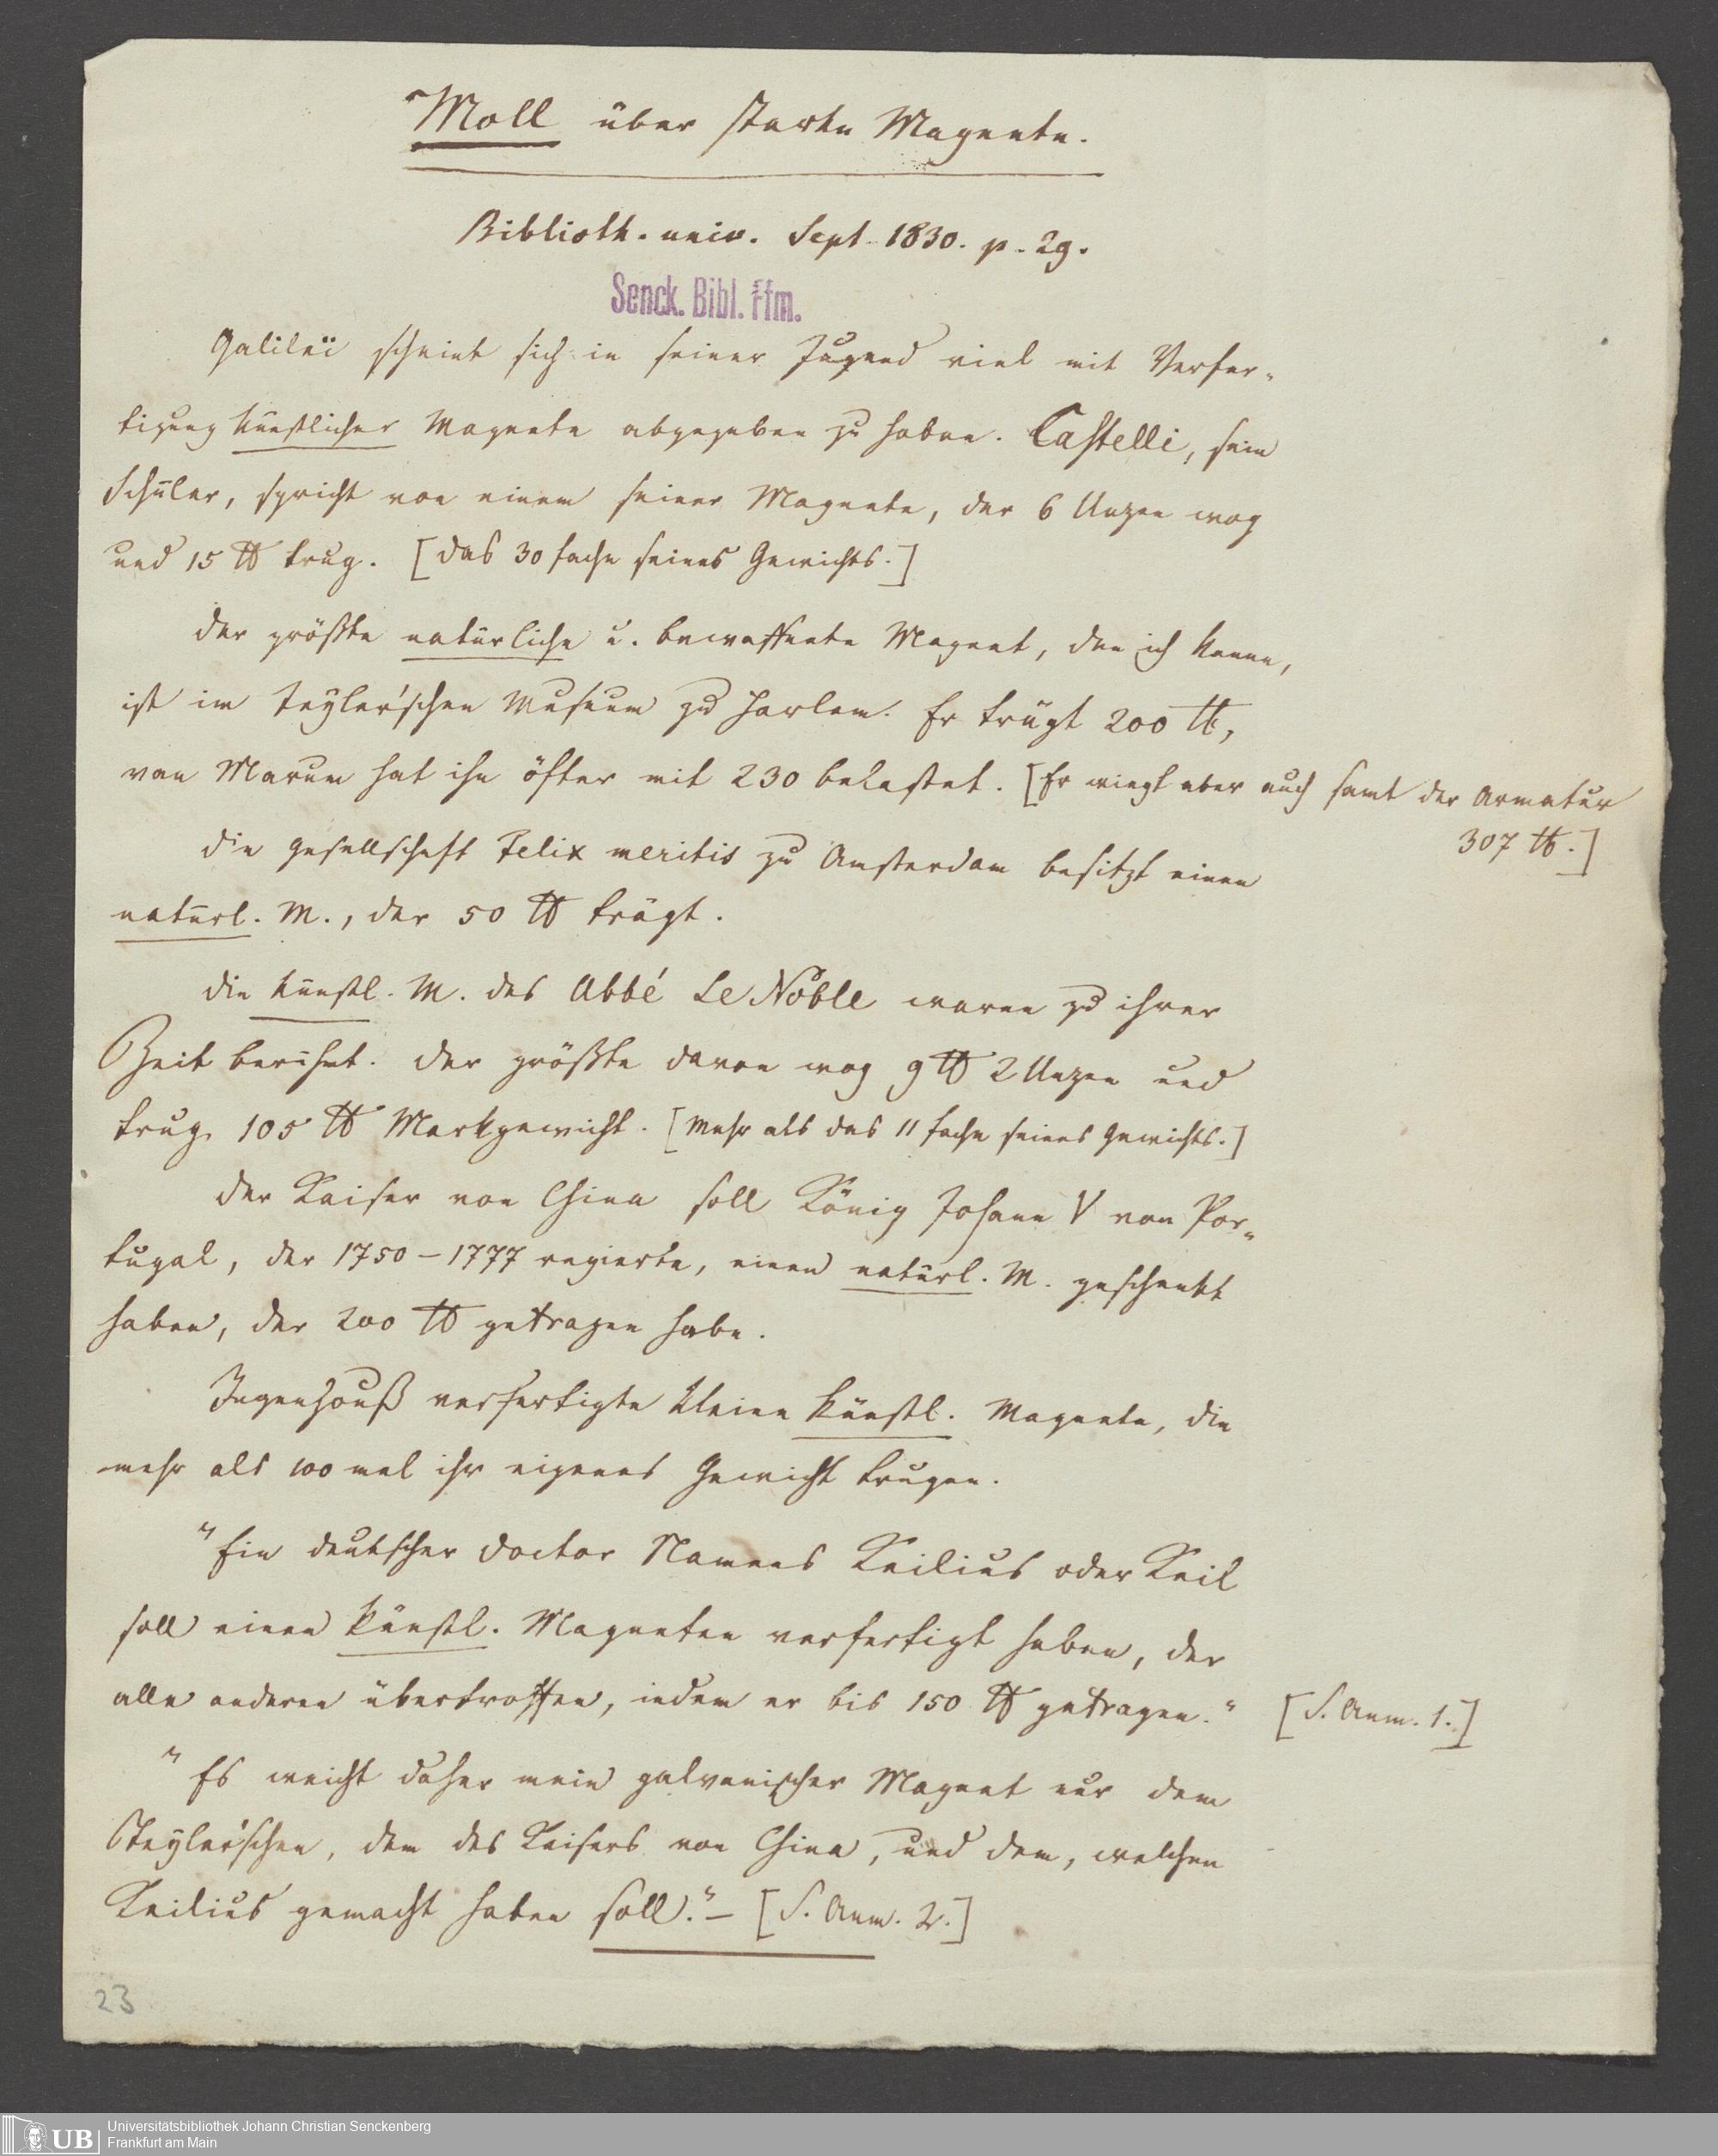 Moll über starke Magnete.
Biblioth. univ. Sept. 1830. p. 29.
Senck. Bibl. Ffm.
Galileï scheint sich in seiner Jugend viel mit Verfer-
tigung künstlicher Magnete abgegeben zu haben. Castelli, sein
Schüler, spricht von einem seiner Magnete, der 6 Unzen wog
und 15 ℔ trug. [Das 30 fache seines Gewichts.]
Der größte natürliche u. bewaffnete Magnet, den ich kenne,
ist im Teyler'schen Museum zu Harlem. Er trägt 200 ℔,
van Marum hat ihn öfter mit 230 belastet. [Er wiegt aber auch samt der Armatur
307 ℔.]
Die Gesellschaft Felix meritis zu Amsterdam besitzt einen
natürl. M., der 50 ℔ trägt.
Die künstl. M. des Abbé Le Noble waren zu ihrer
Zeit berühmt. Der größte davon wog 9 ℔ 2 Unzen und
trug 105 ℔ Markgewicht. [Mehr als das 11 fache seines Gewichts.]
Der Kaiser von China soll König Johann V von Por-
tugal, der 1750–1777 regierte, einen natürl. M. geschenkt
haben, der 200 ℔ getragen habe.
Ingenhouß verfertigte kleine künstl. Magnete, die
mehr als 100 mal ihr eigenes Gewicht trugen.
"Ein deutscher Doctor Namens Keilius oder Keil
soll einen künstl. Magneten verfertigt haben, der
alle anderen übertroffen, indem er bis 150 ℔ getragen." [S. Anm. 1.]
"Es weicht daher mein galvanischer Magnet nur dem
Teyler'schen, dem des Kaisers von China, und dem, welchen
Keilius gemacht haben soll." – [S. Anm. 2.]
23
UB
Universitätsbibliothek Johann Christian Senckenberg
Frankfurt am Main